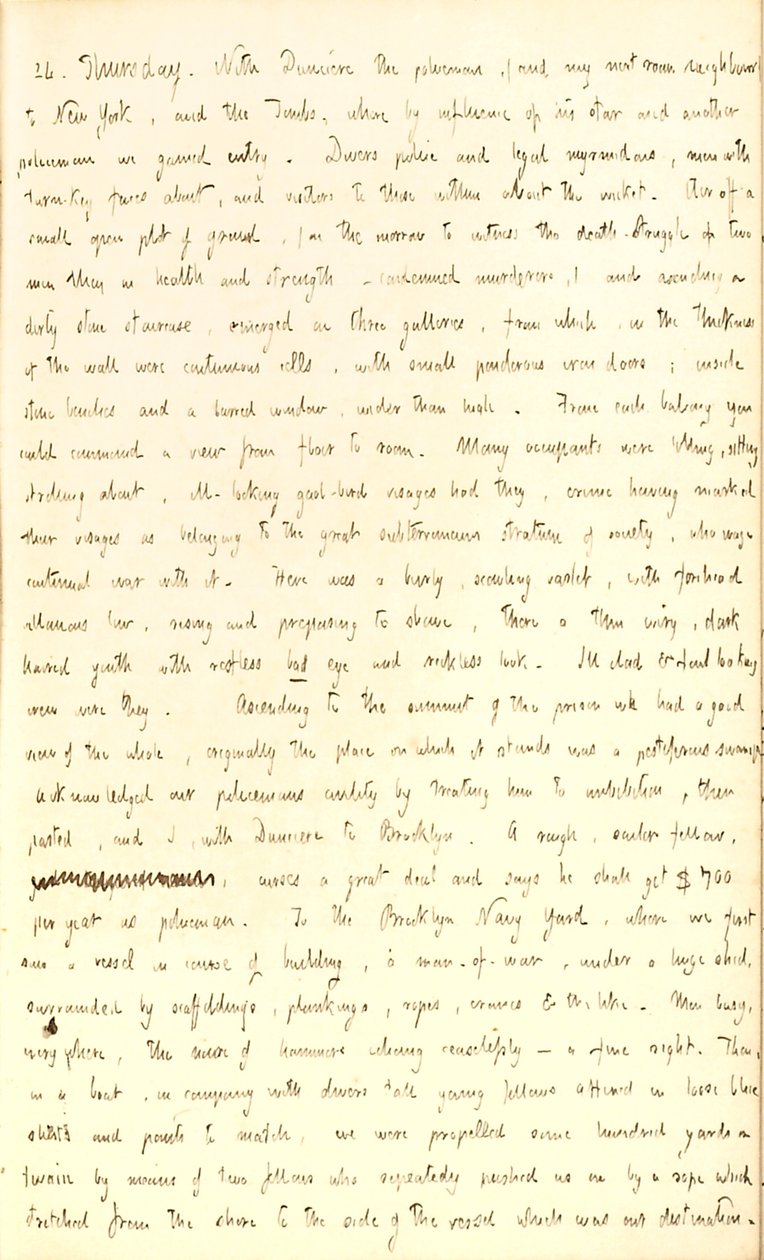 24. Thursday. With Dunciere the policeman, (and my next room neighbour)
to New York, and the Tombs, where by influence of his star and another
policeman we gained entry. Divers police and legal myrmidons, men with
turn-key faces about, and visitors to those within about the wicket. Over a
small open plot of ground, (on the morrow to witness the death-struggle of two
men then in health and strength - condemned murderers,) and ascending a
dirty stone staircase, emerged on three galleries, from which, in the thickness
of the wall were continuous cells, with small ponderous iron doors; inside
stone benches and a barred window, wider than high. From each balcony you
could command a view from floor to roof. Many occupants were lolling, sitting
strolling about, ill-looking gaol-bird visages had they, crime having marked
their visages as belonging to the great subterranean stratum of society, who wage
continual war with it. Here was a burly, scowling varlet, with forehead
villanous low, rising and preparing to shave, there a thin wiry, dark
haired youth with restless bad eye and reckless look. Ill clad & foul looking
men were they. Ascending to the summit of the prison we had a good
view of the whole, originally the place on which it stands was a pestiferous swamp.
Acknowledged our policemans civility by treating him to imbibition, then
parted, and I, with Dunciere to Brooklyn. A rough, sailor fellow,
curses a great deal and says he shall get $700
per year as policeman. To the Brooklyn Navy Yard, where we first
saw a vessel in course of building, a man-of-war, under a huge shed,
surrounded by scaffoldings, plankings, ropes, cranes & the like. Men busy,
everywhere, the noise of hammers echoing ceaselessly — a fine sight. Then,
in a boat, in company with divers tall young fellows attired in loose blue
shirts and pants to match, we were propelled some hundred yards or
twain by means of two fellows who repeatedly pushed us on by a rope which
stretched from the shore to the side of the vessel which was our destination.